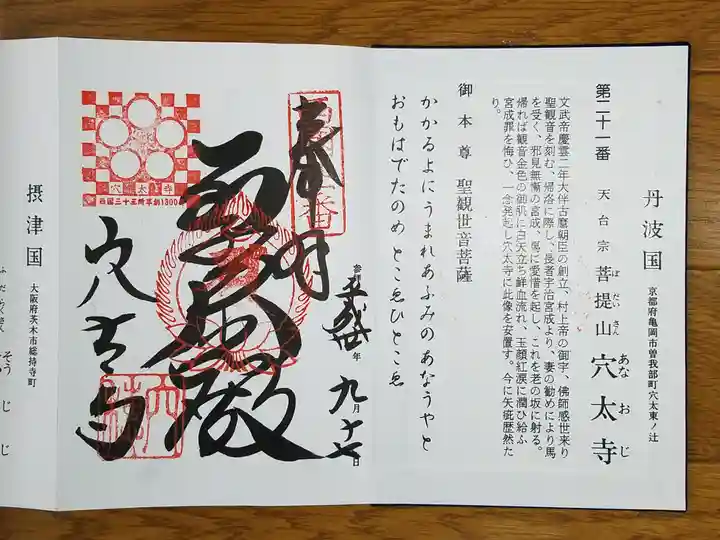 丹波国
京都府亀岡市曽我部町穴太東ノ辻
第二十一番 天台宗 菩提山 穴太寺
ぼだいさん
あなおじ
文武帝慶雲二年大伴古麿朝臣の創立、村上帝の御宇、佛師感世来り
聖観音を刻む、帰洛に際し、長者宇治宮成より、妻の勧めにより馬
を受く、邪見無慚の宮成、馬に愛惜を起し、これを老の坂に射る。
帰れば観音金色の御肌に白矢立ち鮮血流れ、玉顔紅涙に潤ひ給ふ
宮成罪を悔ひ、一念発起し穴太寺に此像を安置す。今に矢疵歴然た
り。
御本尊 聖観世音菩薩
かかるよにうまれあふみのあなうやと
おもはでたのめ とこゑひとこゑ
奉拝
参拝
平成
年
九月十七日
穴太寺
穴太寺
西国三十三所草創1300年
摂津国
大阪府茨木市総持寺町
ふだらくさん
そうじじ